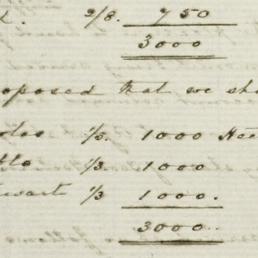 2/8. 750
3000
oposed that we sho
1/3. 1000
1/3 1000
ewart 1/3 1000.
3000.